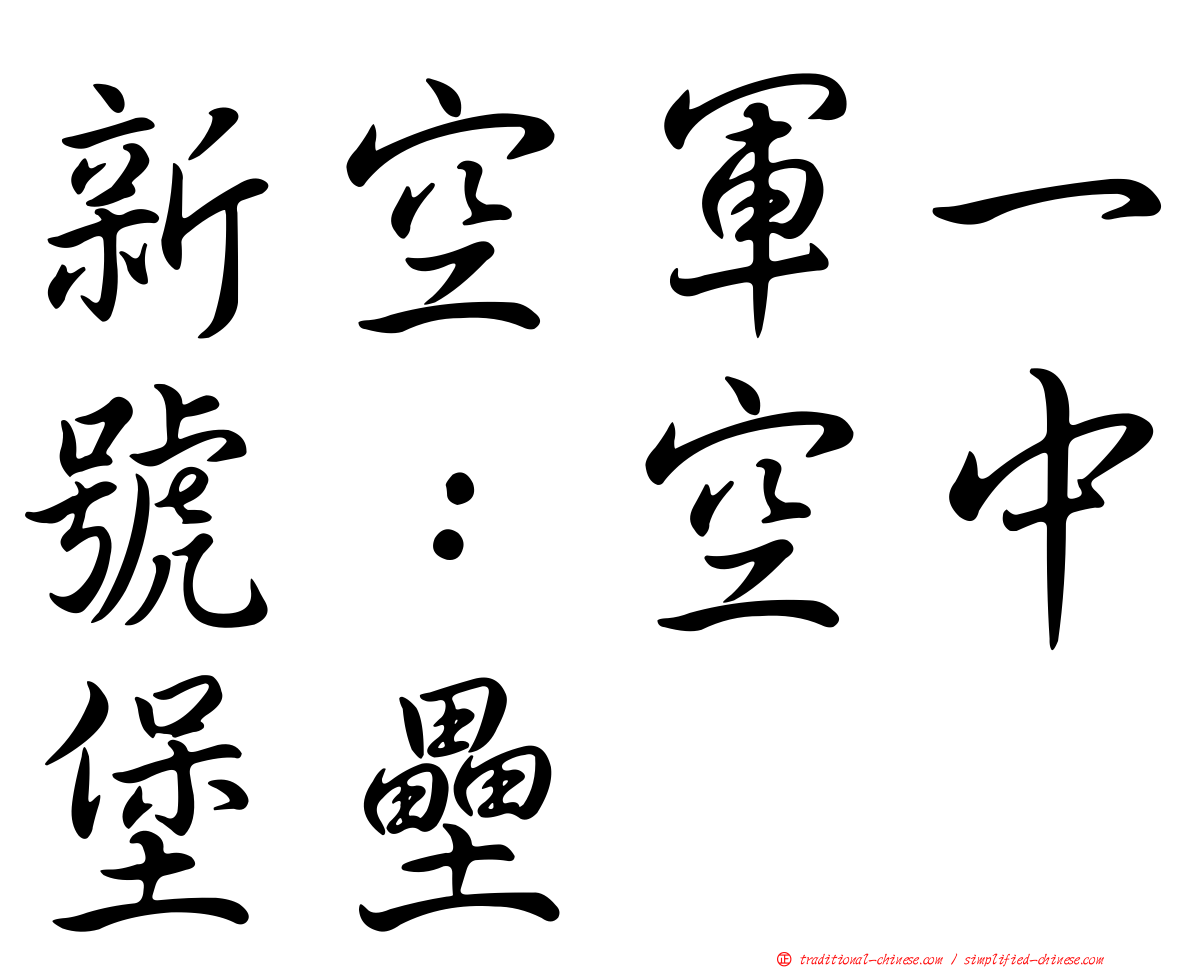 新空軍一
號：空中
堡壘
正 traditional-chinese.com / simplified-chinese.com